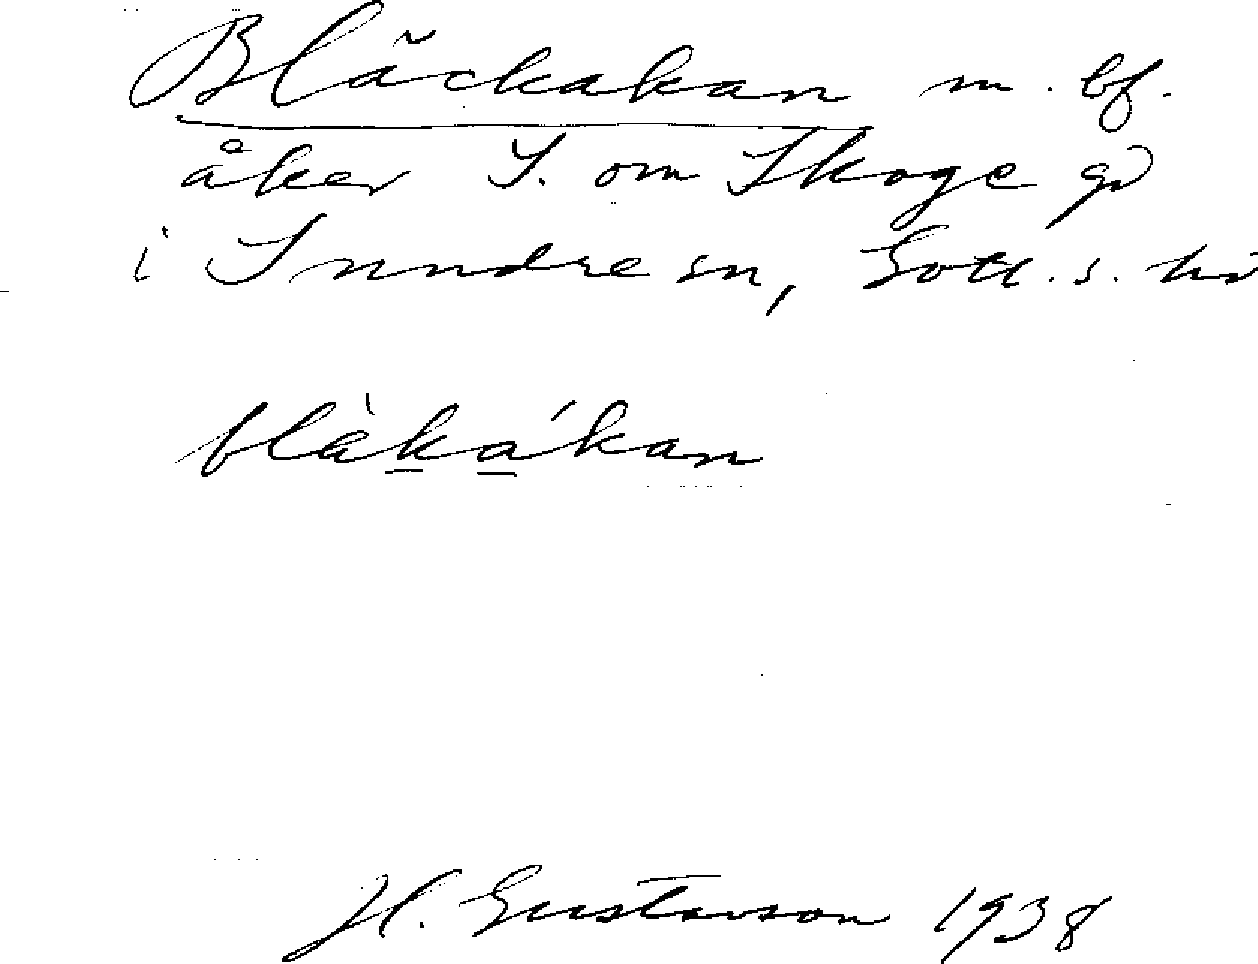 Bläckakan m. bf.
åker S. om Skoge gd
i Sundre sn, Gotl. s. hd
blàkákan
H. Gustavson 1938